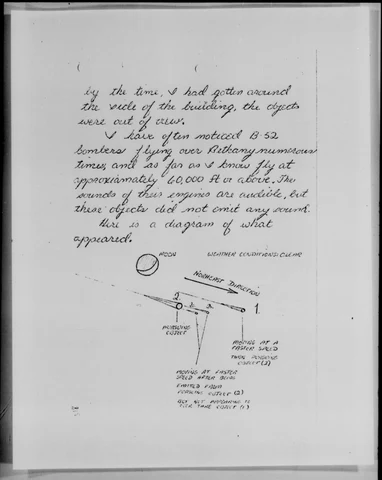 by the time, I had gotten around
the side of the building, the objects
were out of view.
I have often noticed B-52
bombers flying over Bethany numerous
times, and as far as I know fly at
approximately 60,000 ft or above. The
sounds of their engines are audible, but
these objects did not omit any sound.
Here is a diagram of what
appeared.
MOON
WEATHER CONDITIONS: CLEAR
NORTHEAST DIRECTION
2.
1.
PURSUING
OBJECT
MOVING AT A
FASTER SPEED
THAN PURSUING
OBJECT (2)
MOVING AT FASTER
SPEED AFTER BEING
EMITTED FROM
PURSUING OBJECT (2)
BUT NOT APPEARING TO
OVER TAKE OBJECT (1)